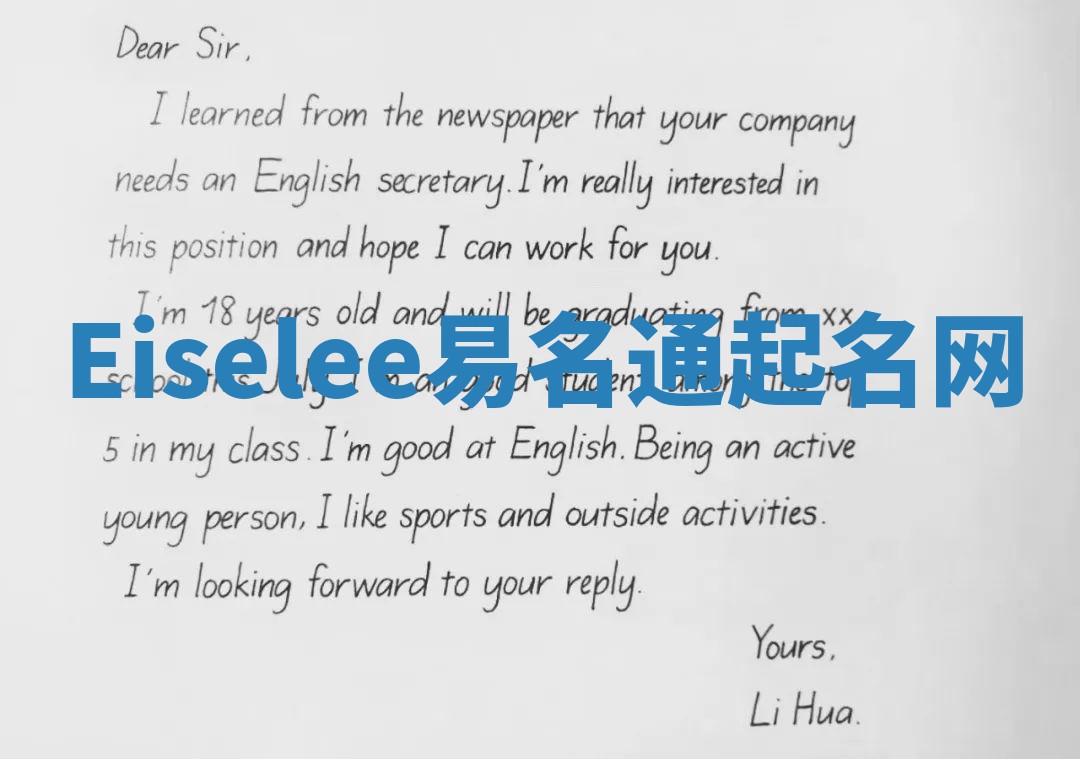 Dear Sir,
I learned from the newspaper that your company
needs an English secretary. I'm really interested in
this position and hope I can work for you.
I'm 18 years old and will be graduating from xx
Eiselee易名通起名网
school this July. I'm an good student among the top
5 in my class. I'm good at English. Being an active
young person, I like sports and outside activities.
I'm looking forward to your reply.
Yours,
Li Hua.